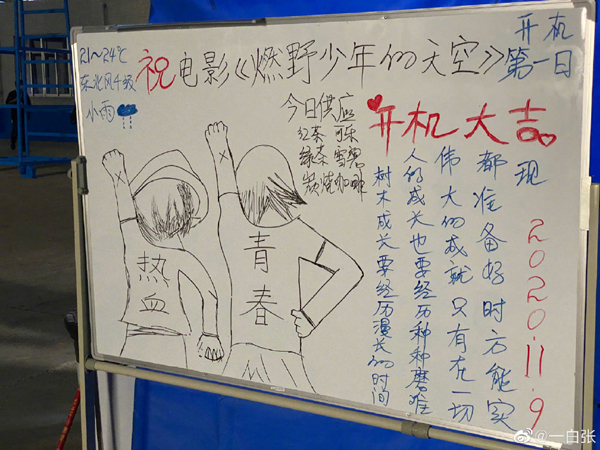 21~24℃
东北风4级
小雨
祝电影《燃野少年的天空》
开机
第一日
今日供应
红茶 可乐
绿茶 雪碧
炭烧咖啡
开机大吉
树木成长要经历漫长的时间
人的成长也要经历种种磨难
伟大的成就只有在一切
都准备好时方能实
现
2020.11.9
热血
青春
@一白张